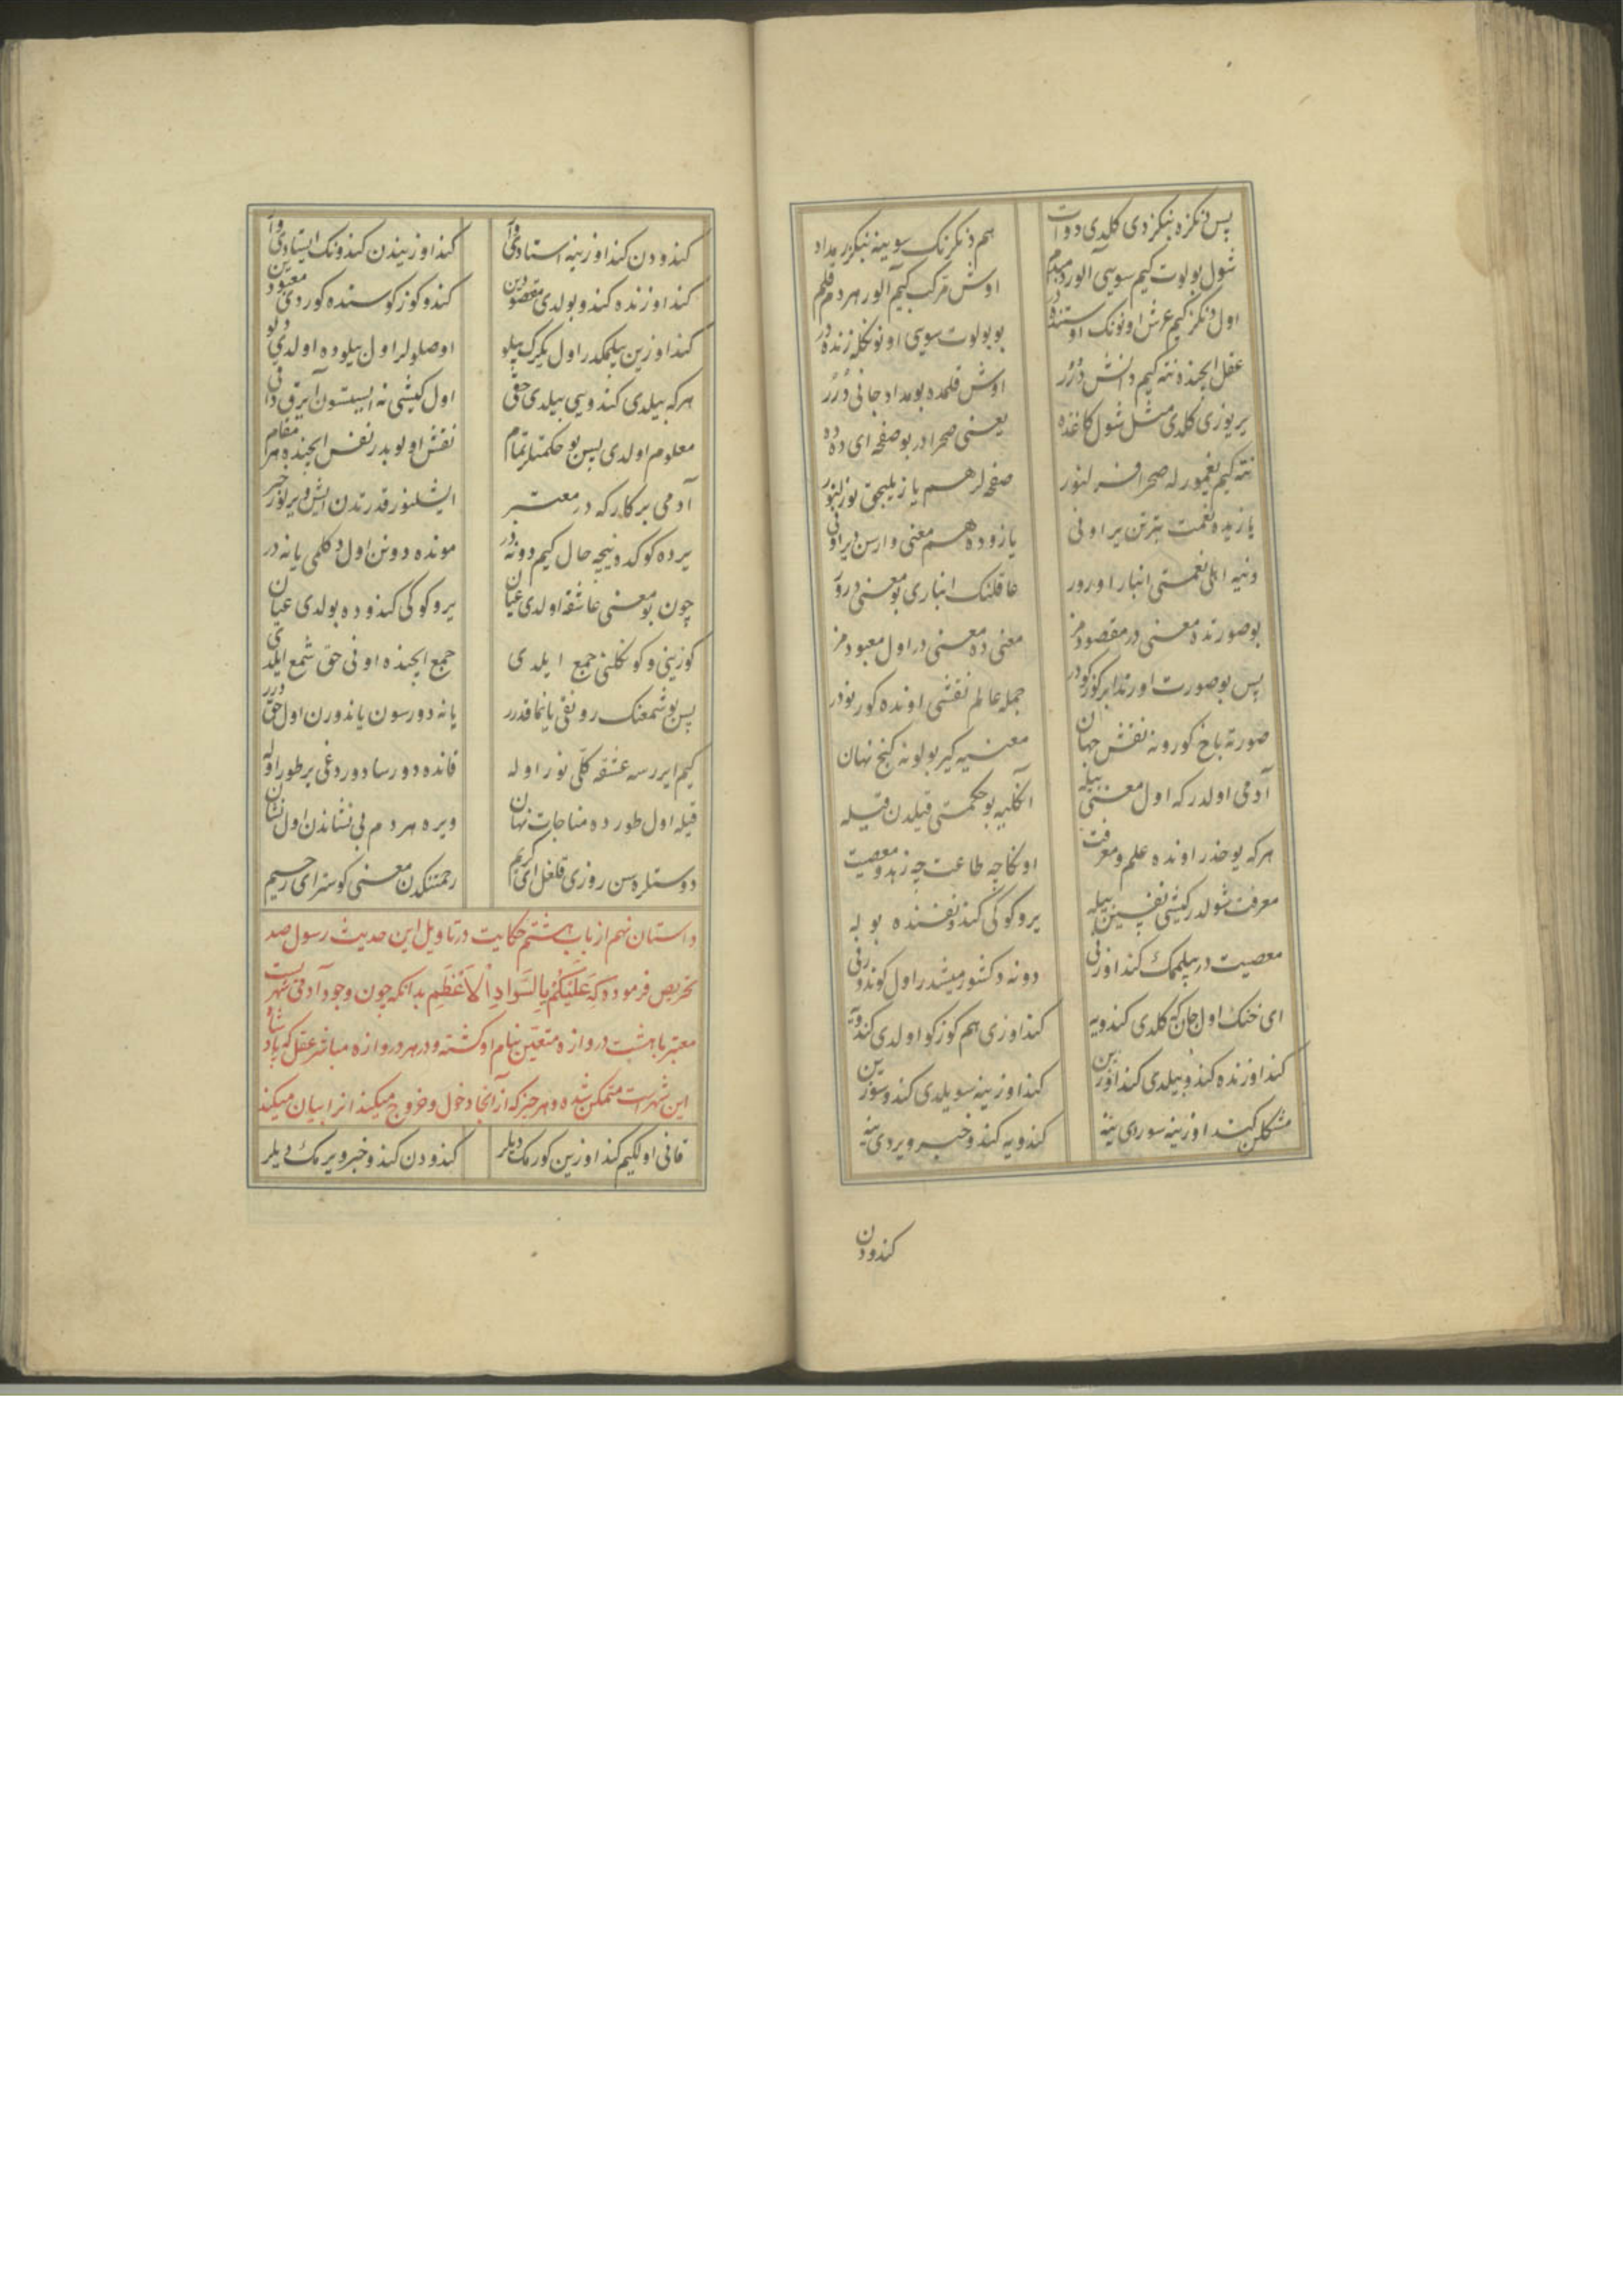 پس دنکزه بنکزدی کلدی دوات هم دنکزنک سوینه بنکزر مداد
شول بولوت کیم سویی آلور دمبدم اوش مرکب کیم آلور هر دم قلم
اول دنکز کیم عرش اونونک اوستنده در بو بولوت سویی اونونکله زنده در
عقل ایچنده نته کیم دانش دُرُر اوش قلمده بو مداد جانی دُرُر
یر یوزی کلدی مثل شول کاغذه یعنی صحرادر بو صفحه ای دده
نته کیم یغمور له صحرا بزلنور صفحه لر هم یازیلیجق یوزلنور
یازیده نعمت بتر تن یر اونی یازوده هم معنی وار سن دیر اونی
دنیه اهلی نعمتی انبار اورور عاقلنک انباری بو معنی درور
بو صورتده معنی در مقصودمز معنی ده معنی در اول معبودمز
پس بو صورت اورتدا بر کوزکودر جمله عالم نقشی اونده کورنودر
صورته باخ کورونه نقش جهان معنیه کیر بولونه کنج نهان
آدمی اولدر که اول معنی بیله آنکلیه بو حکمتی قیلدن قیله
هر که یوخدر اونده علم و معرفت اونکا چه طاعت چه زهد و معصیت
معرفت شولدر کیشی نفسین بیله یر و کوکی کندو نفسنده بوله
معصیت در بیلمک کنداوزنی دونه دکشورمیشدر اول کوندوزنی
ای خنک اول جان که کلدی کندویه کنداوزی هم کوزکو اولدی کندویه
کنداوزنده کندو بیلدی کنداوزین کنداوزینه سویلدی کندو سوزین
مشکلن کنداوزینه سوردی ینه کندویه کندو خبر ویردی ینه
کندودن
کندودن کنداوزینه استادی وآ کنداوزیندن کندونک ایستادی وآ
کنداوزنده کندو بولدی مقصودین کندو کوزکوسنده کوردی معبودین
کنداوزین بیلمکدر اول یکرک بیلو اوصلولر اول بیلوده اولدی دلو
هر که بیلدی کندویی بیلدی حقی اول کیشی نه ایستسون آیرق دخی
معلوم اولدی پس بو حکمتلر تمام نقش اولوبدر نفس ایچنده هر مقام
آدمی بر کارکه در معتبر ایشلنور قدرتدن ایش ویریلور خبر
یرده کوکده نیچه حال کیم دونه در مونده دونن اول دکلمی یا نه در
چون بو معنی عاشقه اولدی عیان یر و کوکی کندوده بولدی عیان
کوزینی و کونکلنی جمع ایلدی جمع ایچنده اونی حق شمع ایلدی
پس بو شمعنک رونقی یانماقدرر یانه دورسون یاندورن اول حقدرر
کیم ایررسه عشقه کلّی نور اوله قانده دورسا دوردغی یر طور اوله
قیله اول طورده مناجات نهان ویره هر دم بی نشاندن اول نشان
دوستلره سن روزی قلغل ای کریم رحمتنکدن معنی کوستر ای رحیم
داستان نهم از باب هشتم حکایت در تاویل این حدیث رسول صد
تحریص فرموده که عَلَیْکُمْ بِالسَّوَادِ اْلاَعْظَمِ بدانکه چون وجود آدمی شهریست
معتبر با هشت دروازه متعیّن بنام او کشته و در هر دروازه مباشر عقل که پادشاه
این شهرست متمکن شده و هر چیز که از آنجا دخول و خروج میکند انرا بیان میکند
قانی اولکیم کنداوزین کورمک دیلر کندودن کندو خبر ویرمک دیلر